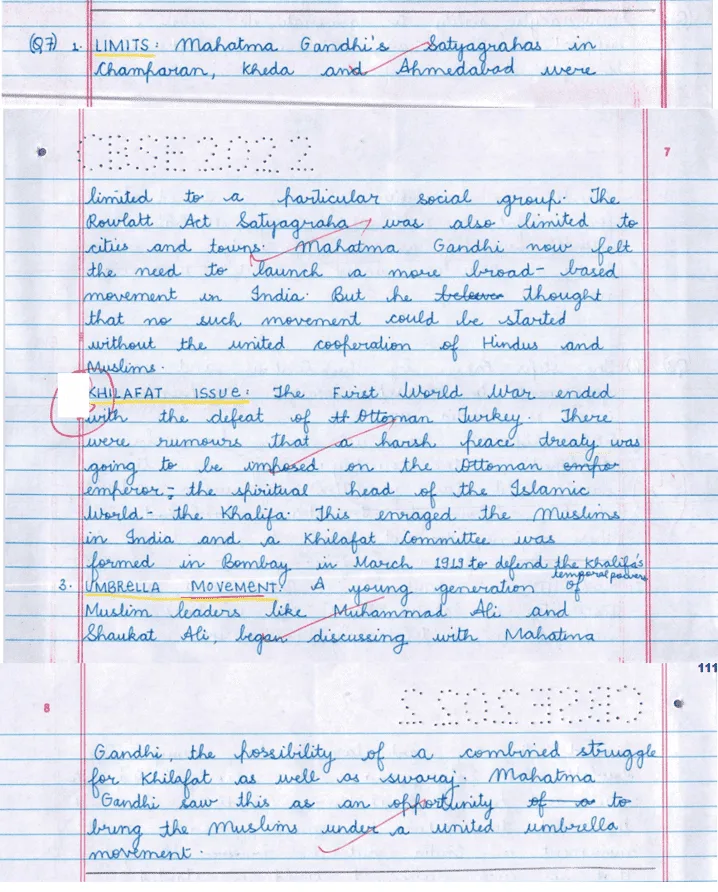 (Q7) 1. LIMITS: Mahatma Gandhi's Satyagrahas in
Champaran, Kheda and Ahmedabad were
CBSE 2022
7
limited to a particular social group. The
Rowlatt Act Satyagraha was also limited to
cities and towns. Mahatma Gandhi now felt
the need to launch a more broad-based
movement in India. But he believes thought
that no such movement could be started
without the united cooperation of Hindus and
Muslims.
KHILAFAT ISSUE: The First World War ended
with the defeat of Ottoman Turkey. There
were rumours that a harsh peace treaty was
going to be imposed on the Ottoman empo
emperor; the spiritual head of the Islamic
World - the Khalifa. This enraged the Muslims
in India and a Khilafat Committee was
formed in Bombay in March 1919 to defend the Khalifa's
temporal powers
3. UMBRELLA MOVEMENT: A young generation of
Muslim leaders like Muhammad Ali and
Shaukat Ali, began discussing with Mahatma
111
8
CBSE 2022
Gandhi, the possibility of a combined struggle
for Khilafat as well as swaraj. Mahatma
Gandhi saw this as an opportunity of a to
bring the Muslims under a united umbrella
movement.